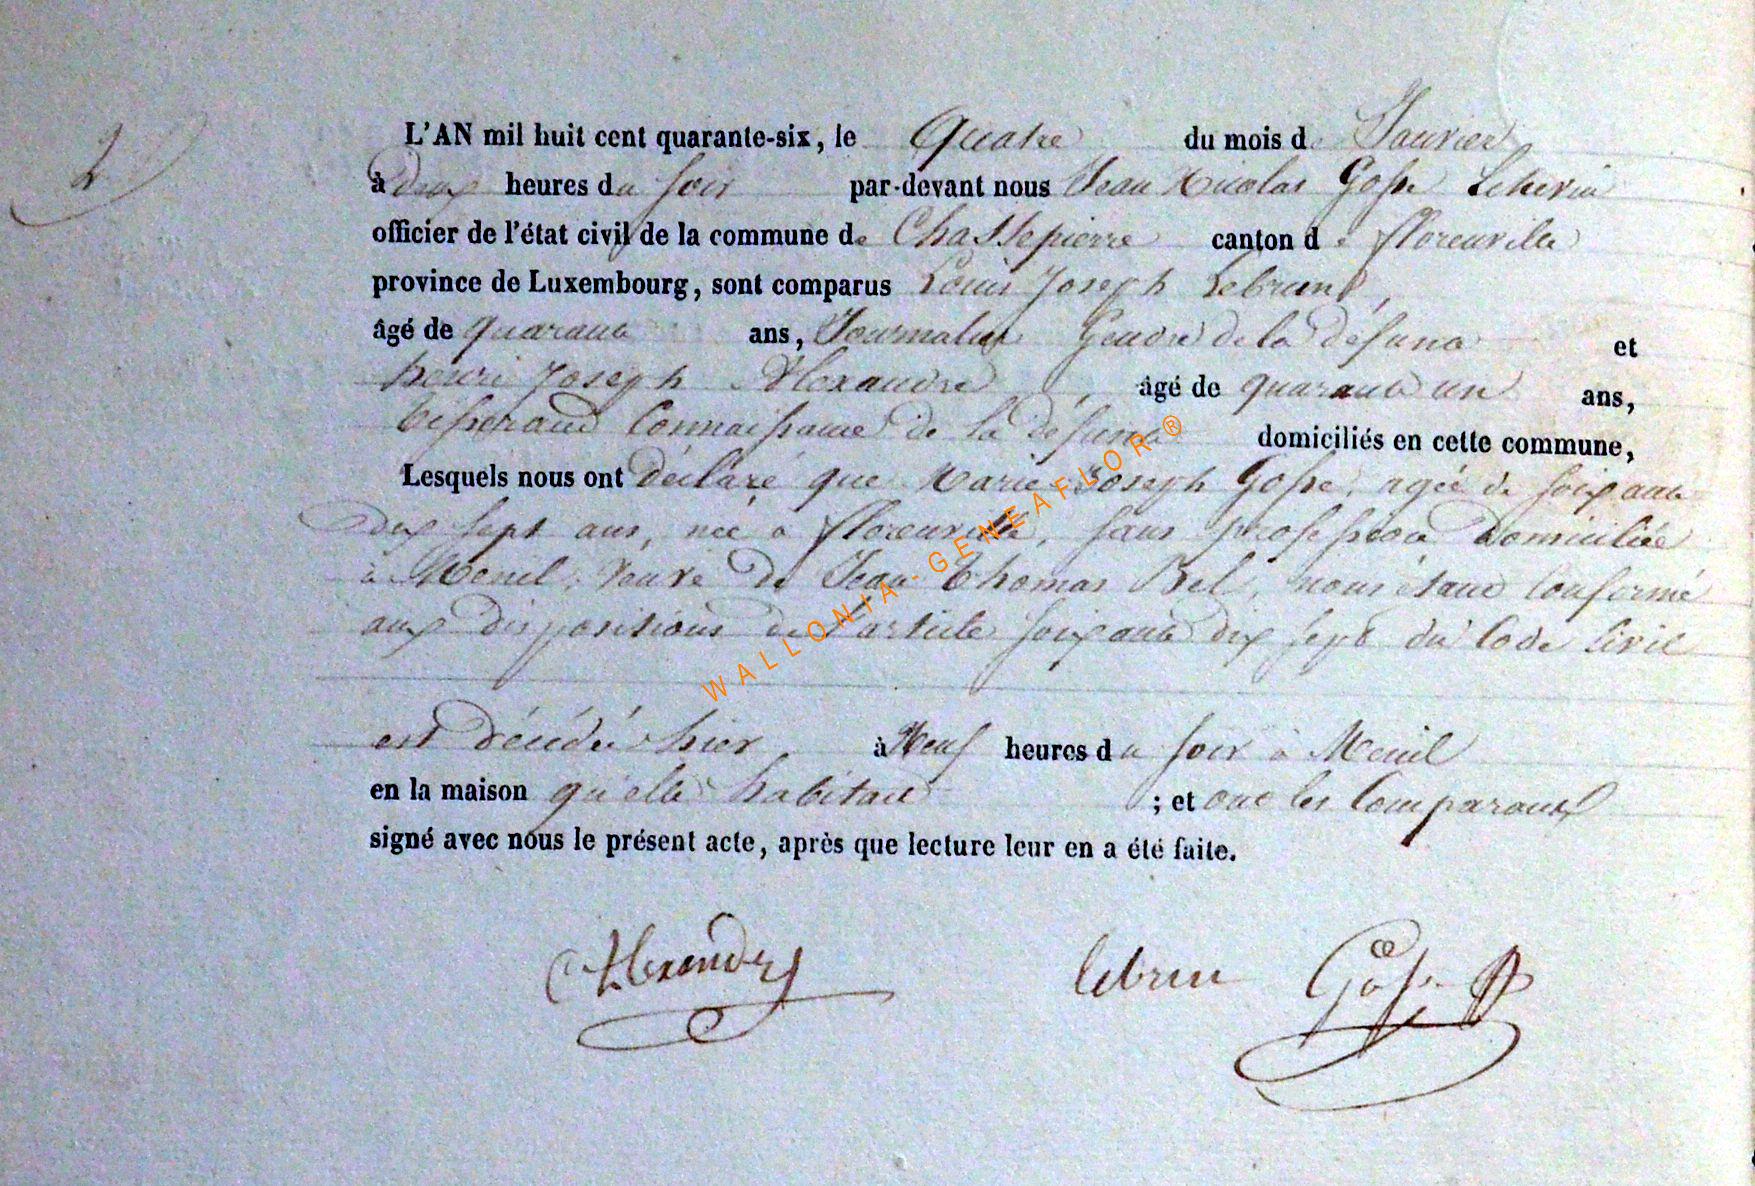 2
L'AN mil huit cent quarante-six, le Quatre du mois de Janvier
à deux heures du soir par-devant nous Jean Nicolas Gosse Echevin
officier de l'état civil de la commune de Chassepierre canton de florenville
province de Luxembourg, sont comparus Louis Joseph Lebrun,
âgé de quarante ans, Journalier Gendre de la défunte et
henri Joseph Alexandre, âgé de quarante un ans,
Tisserand Connaissance de la défunte domiciliés en cette commune,
Lesquels nous ont déclaré que Marie Joseph Gosse, agée de soixante
dix sept ans, née à florenville, sans profession domiciliée
à Menil, veuve de Jean Thomas Bel, nous étant conformé
aux dispositions de l'article soixante dix sept du Code Civil
est décédée hier, à Neuf heures du soir à Menil
en la maison qu'elle habitait ; et ont les Comparants
signé avec nous le présent acte, après que lecture leur en a été faite.
Alexandre lebrun Gosse
WALLONIA-GENEAFLOR®